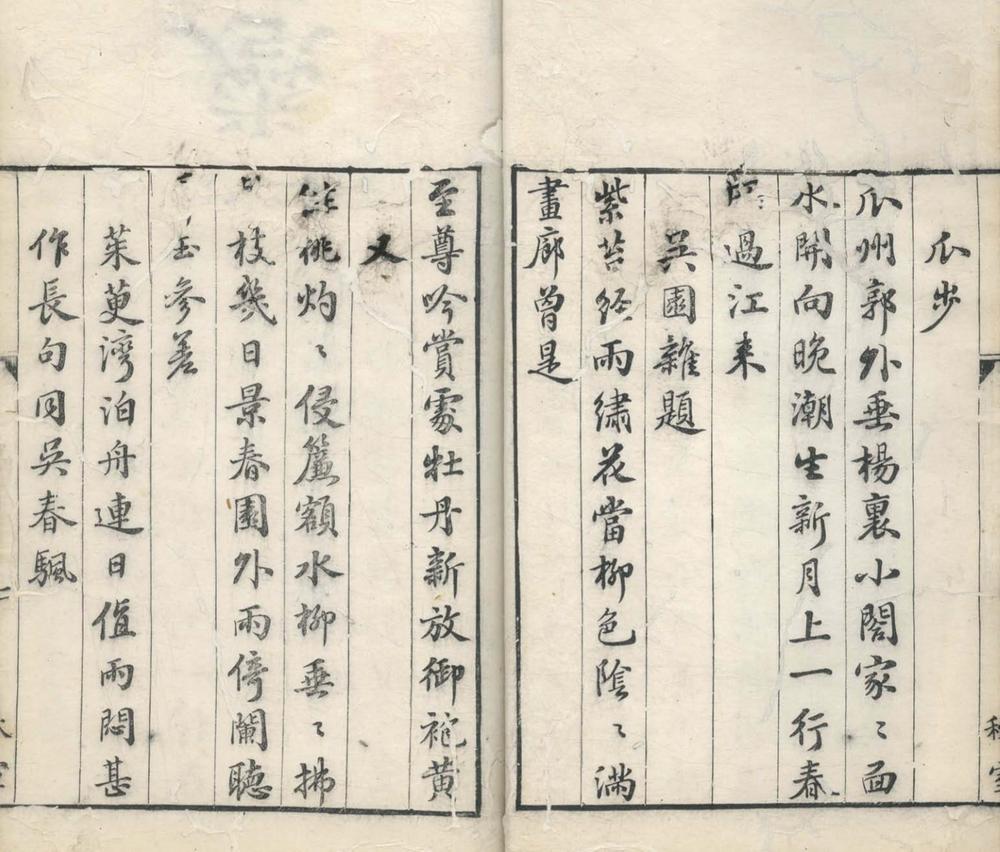 瓜步
瓜州郭外垂楊裏小閣家〻面
水開向晚潮生新月上一行春
過江来
吳園雜題
紫苔經雨繡花當柳色陰〻滿
畫廊曾是
至尊吟賞處牡丹新放御袍黃
又
桃灼〻侵簾額水柳垂〻拂
枝幾日景春園外雨倚闌聽
玉參差
茱萸灣泊舟連日值雨悶甚
作長句同吳春颿